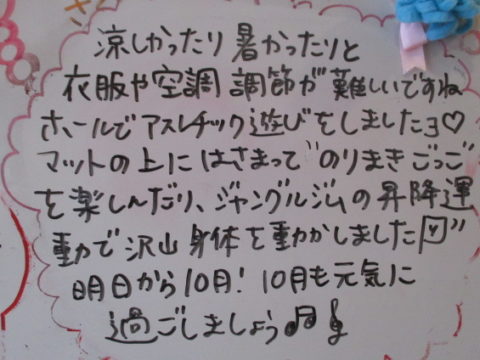 涼しかったり暑かったりと
衣服や空調調節が難しいですね
ホールでアスレチック遊びをしましたヨ♡
マットの上にはさまって"のりまきごっこ"
を楽しんだり、ジャングルジムの昇降運
動で沢山身体を動かしました
明日から10月！10月も元気に
過ごしましょう♫